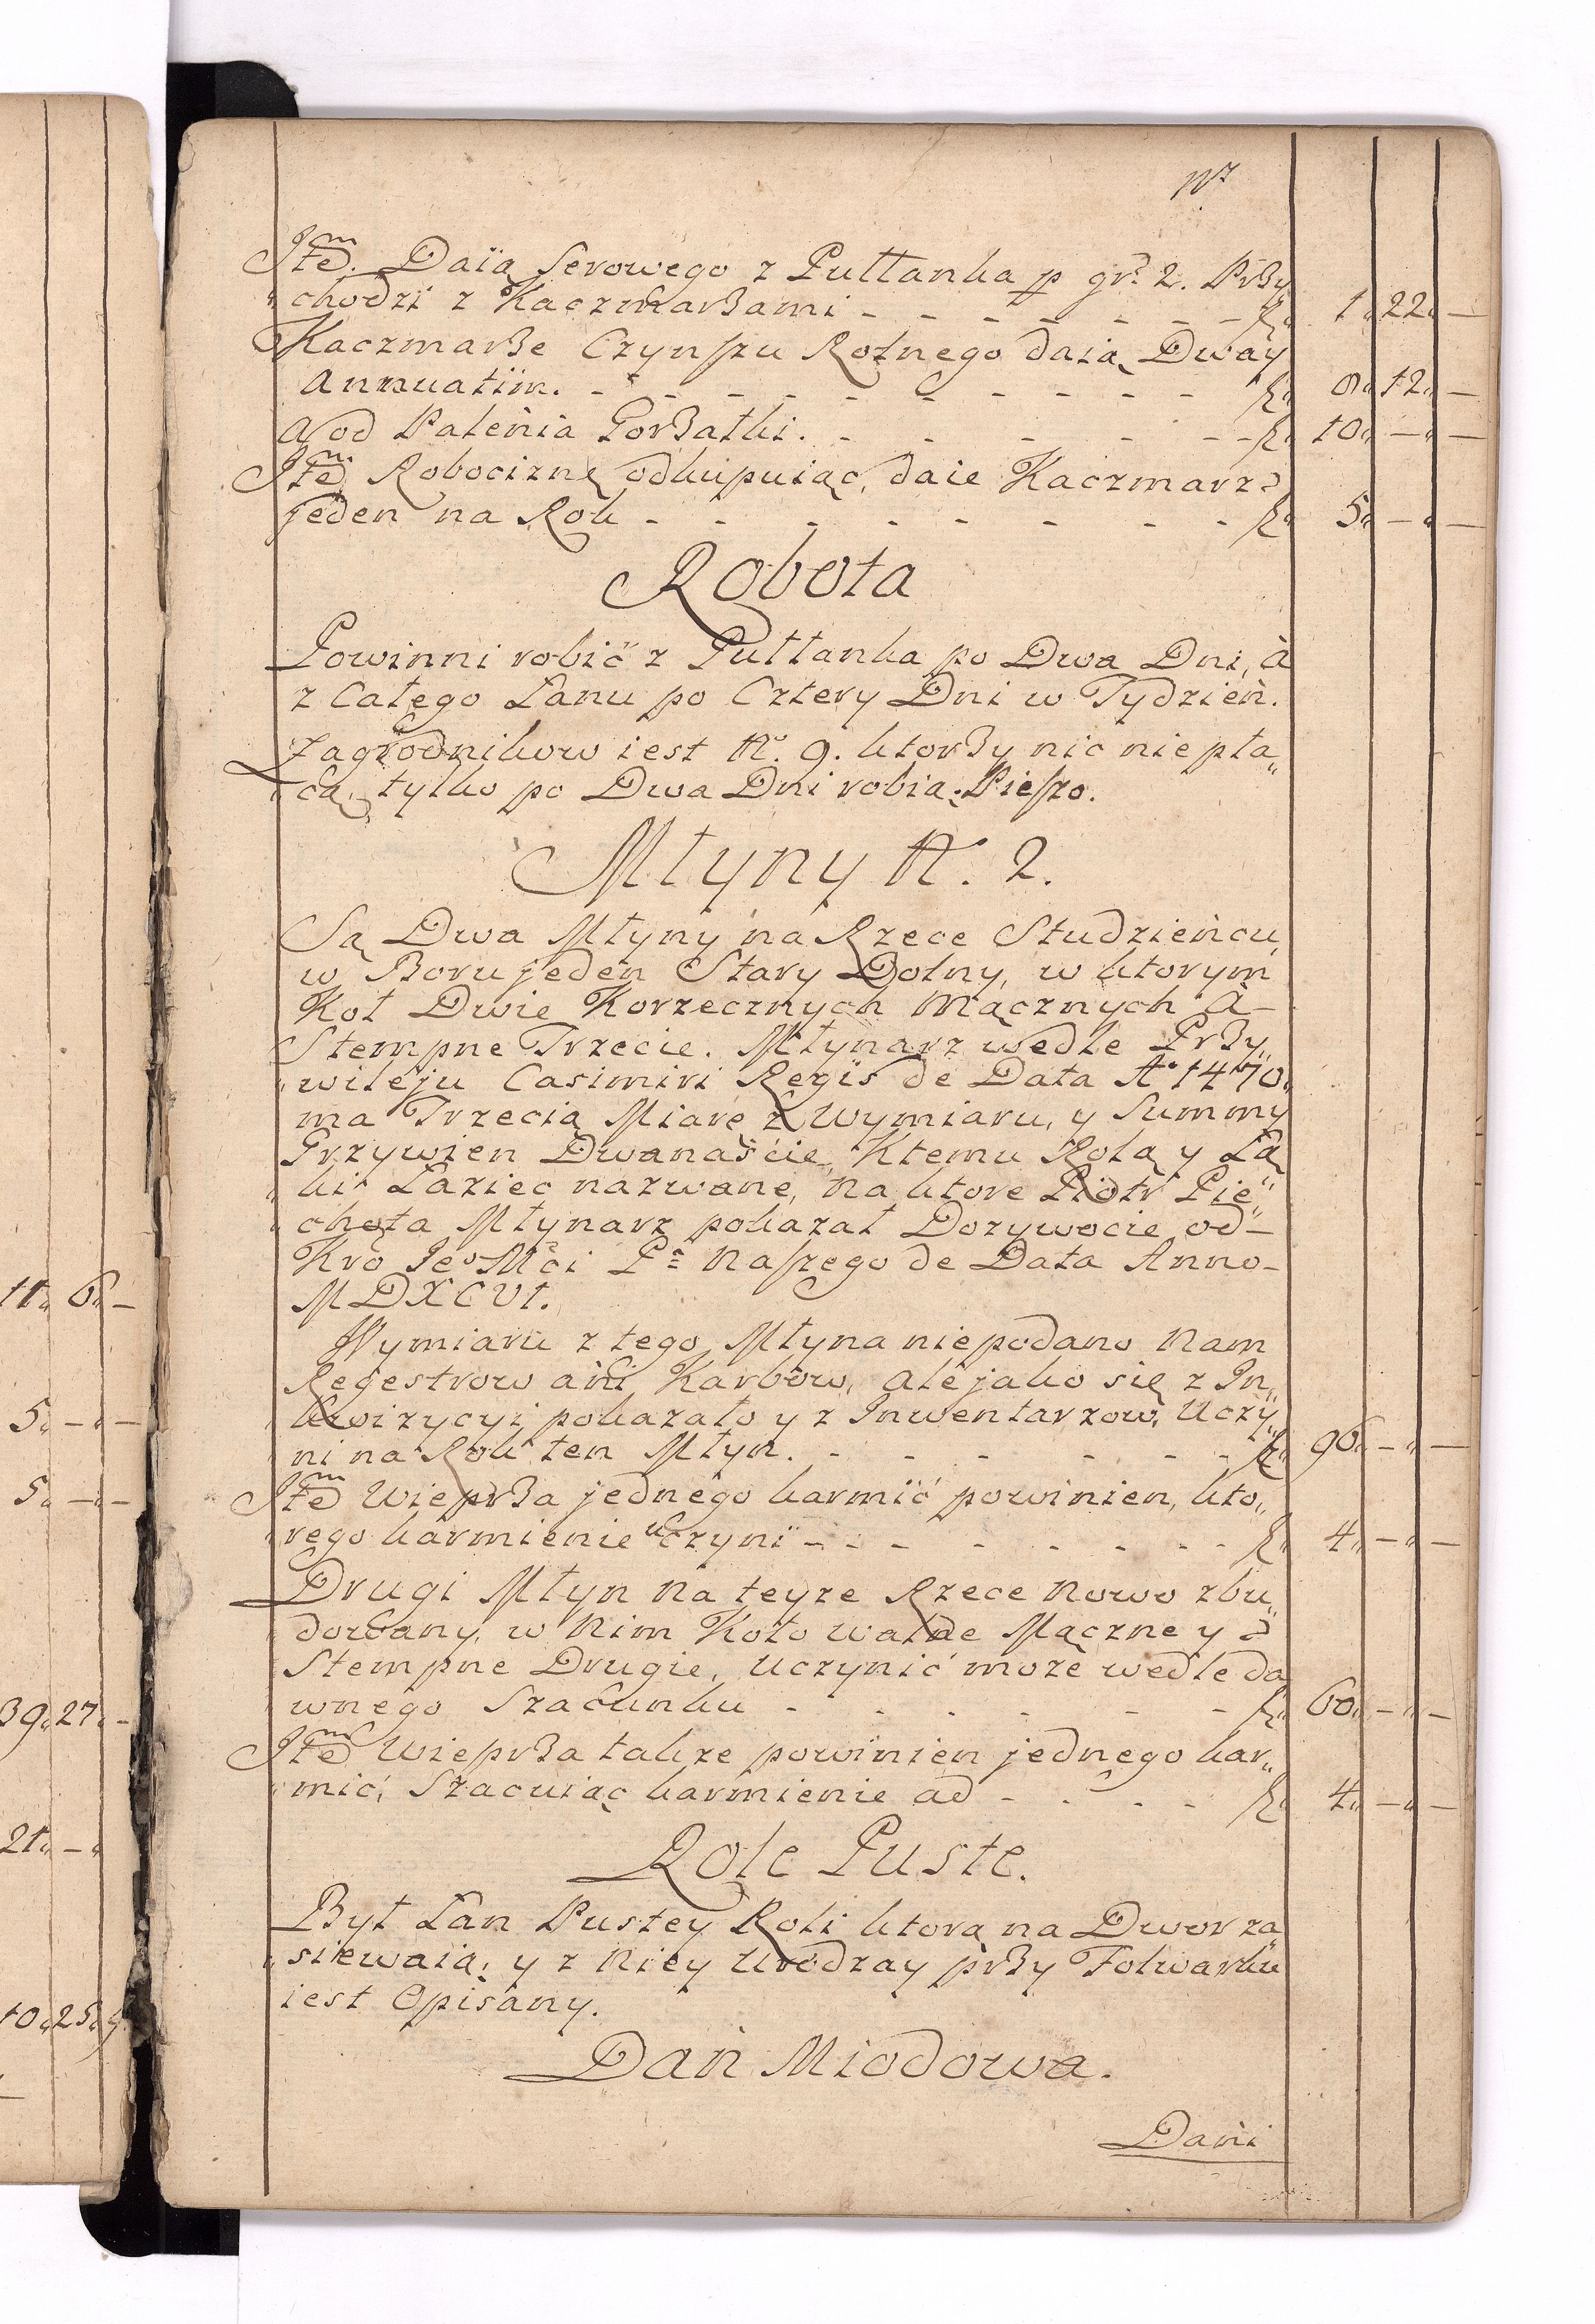 Itẽm. Daią Serowego z Pułłanka p gr: 2. Przy
chodzi z Kaczmarzami - - - - - - - f. 1. 22. —
Kaczmarze Czynszu Rolnego daią Dwáy
Annuatim. - - - - - - - - - f. 0. 12. —
A od Palenia Gorzałki. - - - - - f. 10. — —
Itẽm Robociznę odkupuiąc, daie Kaczmarz
jeden na Rok - - - - - - - - f. 5. — —
Robota
Powinni robić z Pułłanka po Dwa Dni, à
z Całego Łanu po Cztery Dni w Tydzień.
Zagrodnikow iest No. 9. ktorzy nic nie pła„
cą, tylko po Dwa Dni robią. Pieszo.
Młyny No. 2.
Są Dwa Młyny na Rzece Studzieńcu,
w Boru jeden Stary Dolny, w ktorym
Koł Dwie Korzecznych Mącznych à
Stempne Trzecie. Młynarz wedle Przy„
wileju Casimiri Regis de Data Ao 1470.
ma Trzecią Miarę z Wymiaru, y Summy
Grzywien Dwanaście, Ktemu Rolą y Łą„
ki Laziec nazwane, na ktore Piotr Pie„
chota Młynarz pokazał Dozywocie od
Kro Jeo Mci Pa Naszego de Data Anno
MDXCVI.
Wymiaru z tego Młyna niepodano Nam
Regestrow ani Karbow, ale jako się z In„
kwizycyi pokazało y z Inwentarzow, Uczy„
ni na Rok ten Młyn. - - - - - - f. 96. — —
Itẽm Wieprza jednego karmić powinien, kto„
rego karmienie uczyni - - - - - - - f. 4. — —
Drugi Młyn na teyze Rzece Nowo zbu„
dowany, w Nim Koło walne Mączne y
Stempne Drugie, Uczynić może wedle da
wnego Szacunku - - - - - - f. 60. — —
Itẽm Wieprza takze powinien jednego kar„
mić, Szacuiąc karmienie ad - - - - f. 4. — —
Role Puste.
Był Łan Pustey Roli ktorą na Dwor za
siewaią, y z Niey Urodzay przy Folwarku
iest Opisany.
Dań Miodowa.
Dani
11. 6. —
5. — —
5. — —
39. 27. —
21. —
10. 25. 9